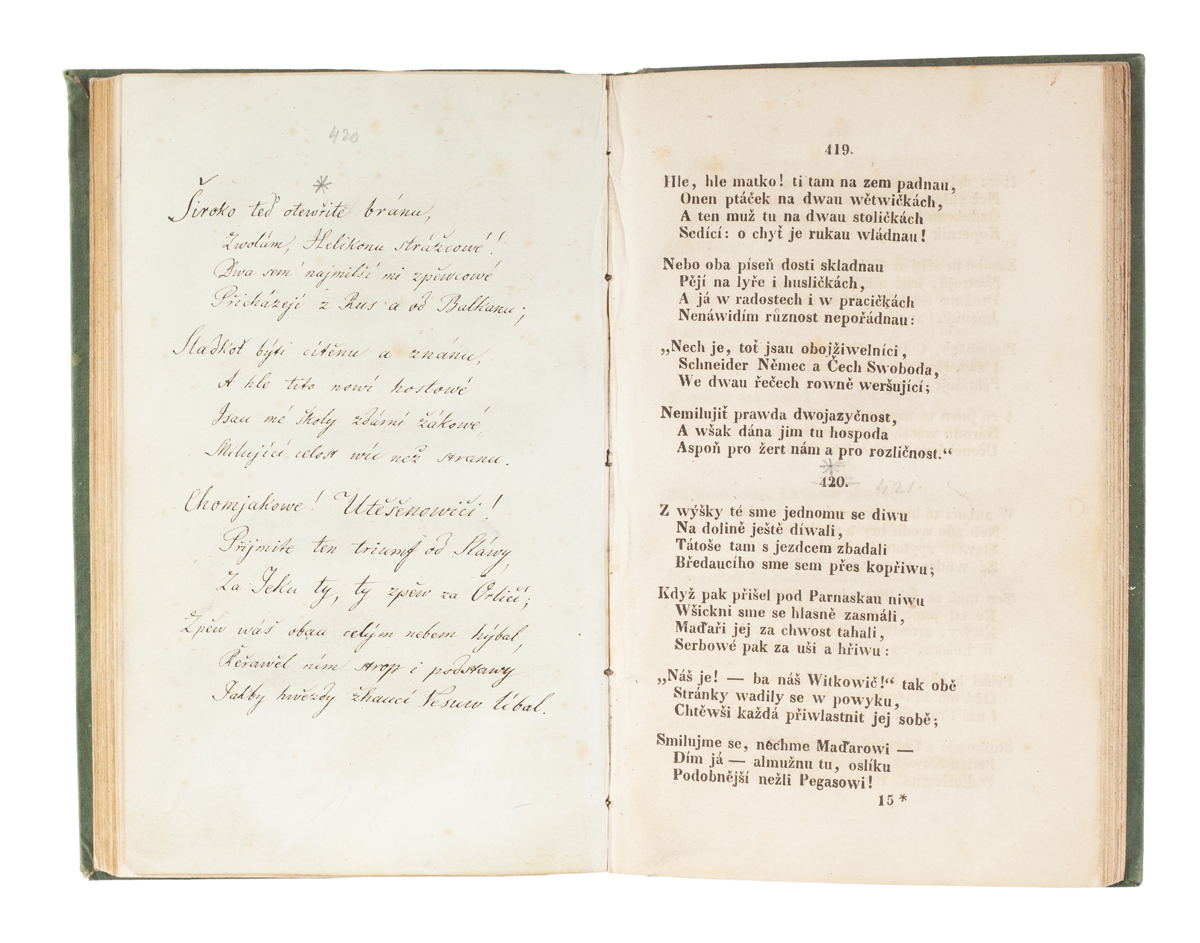 420
*
Široko teď otewřite bránu,
Zwolám, Helikonu strážcowé!
Dwa sem najmilší mi zpěwcowé
Přicházejí z Rus a od Balkanu;
Sladkoť býti cítěnu a znánu,
A hle tito nowí hostowé
Jsau mé školy zdární žákowé,
Milující celost wíc než stranu.
Chomjakowe! Utěšenowići!
Přijmite ten triumf od Sláwy,
Za Jeku ty, ty zpěw za Orlici;
Zpěw wáš obau celým nebem hýbal,
Řeřawěl ním strop i podstawy
Jakby hwězdy žhaucí Vesuw líbal.
419.
Hle, hle matko! ti tam na zem padnau,
Onen ptáček na dwau wětwičkách,
A ten muž tu na dwau stoličkách
Sedící: o chyť je rukau wládnau!
Nebo oba píseň dosti skladnau
Pějí na lyře i husličkách,
A já w radostech i w pracičkách
Nenáwidím různost nepořádnau:
„Nech je, toť jsau obojžiwelníci,
Schneider Němec a Čech Swoboda,
We dwau řečech rowně weršující;
Nemilujiť prawda dwojazyčnost,
A wšak dána jim tu hospoda
Aspoň pro žert nám a pro rozličnost.“
*
120. 421.
Z wýšky té sme jednomu se diwu
Na dolině ještě díwali,
Tátoše tam s jezdcem zbadali
Břědaucího sme sem přes kopřiwu;
Když pak přišel pod Parnaskau niwu
Wšickni sme se hlasně zasmáli,
Maďaři jej za chwost tahali,
Serbowé pak za uši a hřiwu:
„Náš je! — ba náš Witkowič!“ tak obě
Stránky wadily se w powyku,
Chtěwši každá přiwlastnit jej sobě;
Smilujme se, nechme Maďarowi —
Dím já — almužnu tu, oslíku
Podobnější nežli Pegasowi!
15 *